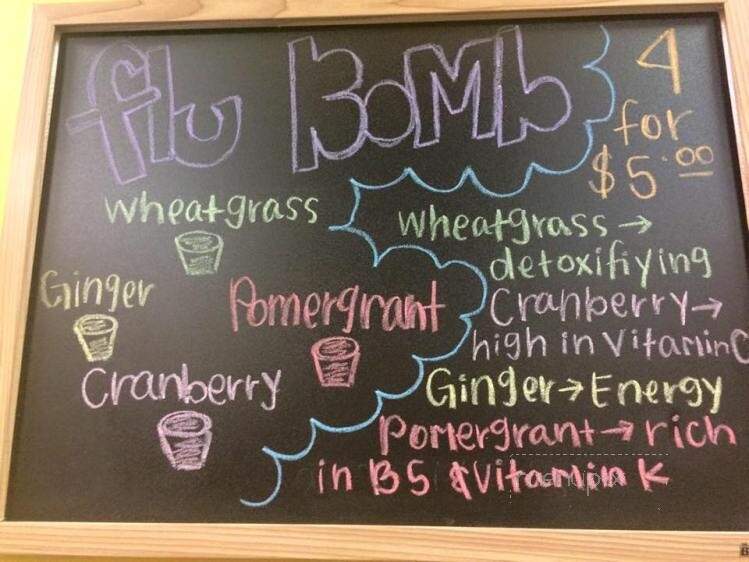 flu Bomb
4
for
$5.00
Wheatgrass
Ginger
Pomergrant
Cranberry
Wheatgrass →
detoxifiying
Cranberry →
high in Vitamin C
Ginger → Energy
Pomergrant → rich
in B5 & Vitamin K